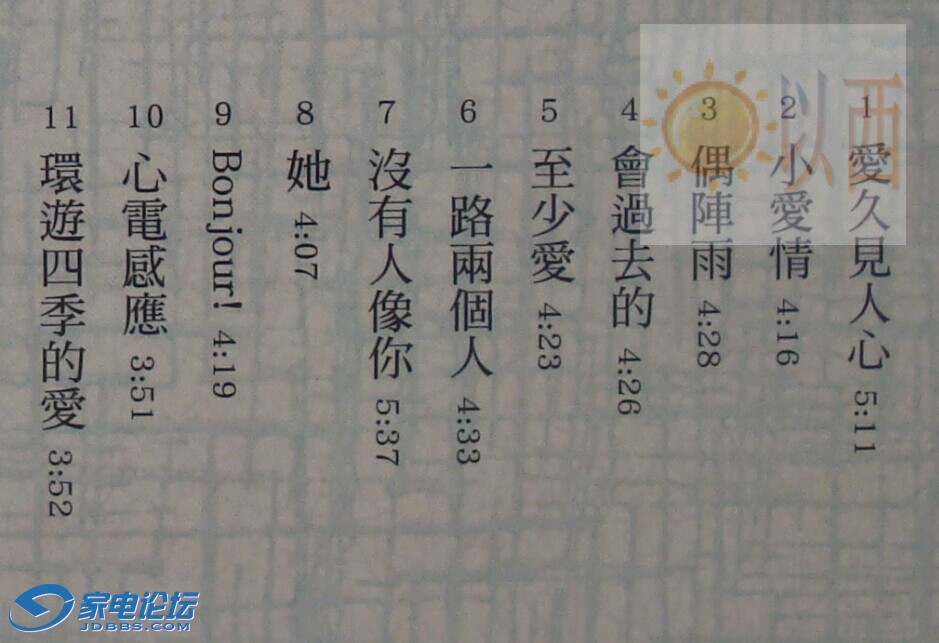 1 愛久見人心 5:11
2 小愛情 4:16
3 偶陣雨 4:28
4 會過去的 4:26
5 至少愛 4:23
6 一路兩個人 4:33
7 沒有人像你 5:37
8 她 4:07
9 Bonjour! 4:19
10 心電感應 3:51
11 環遊四季的愛 3:52
以西
家电论坛
JDBBS.COM